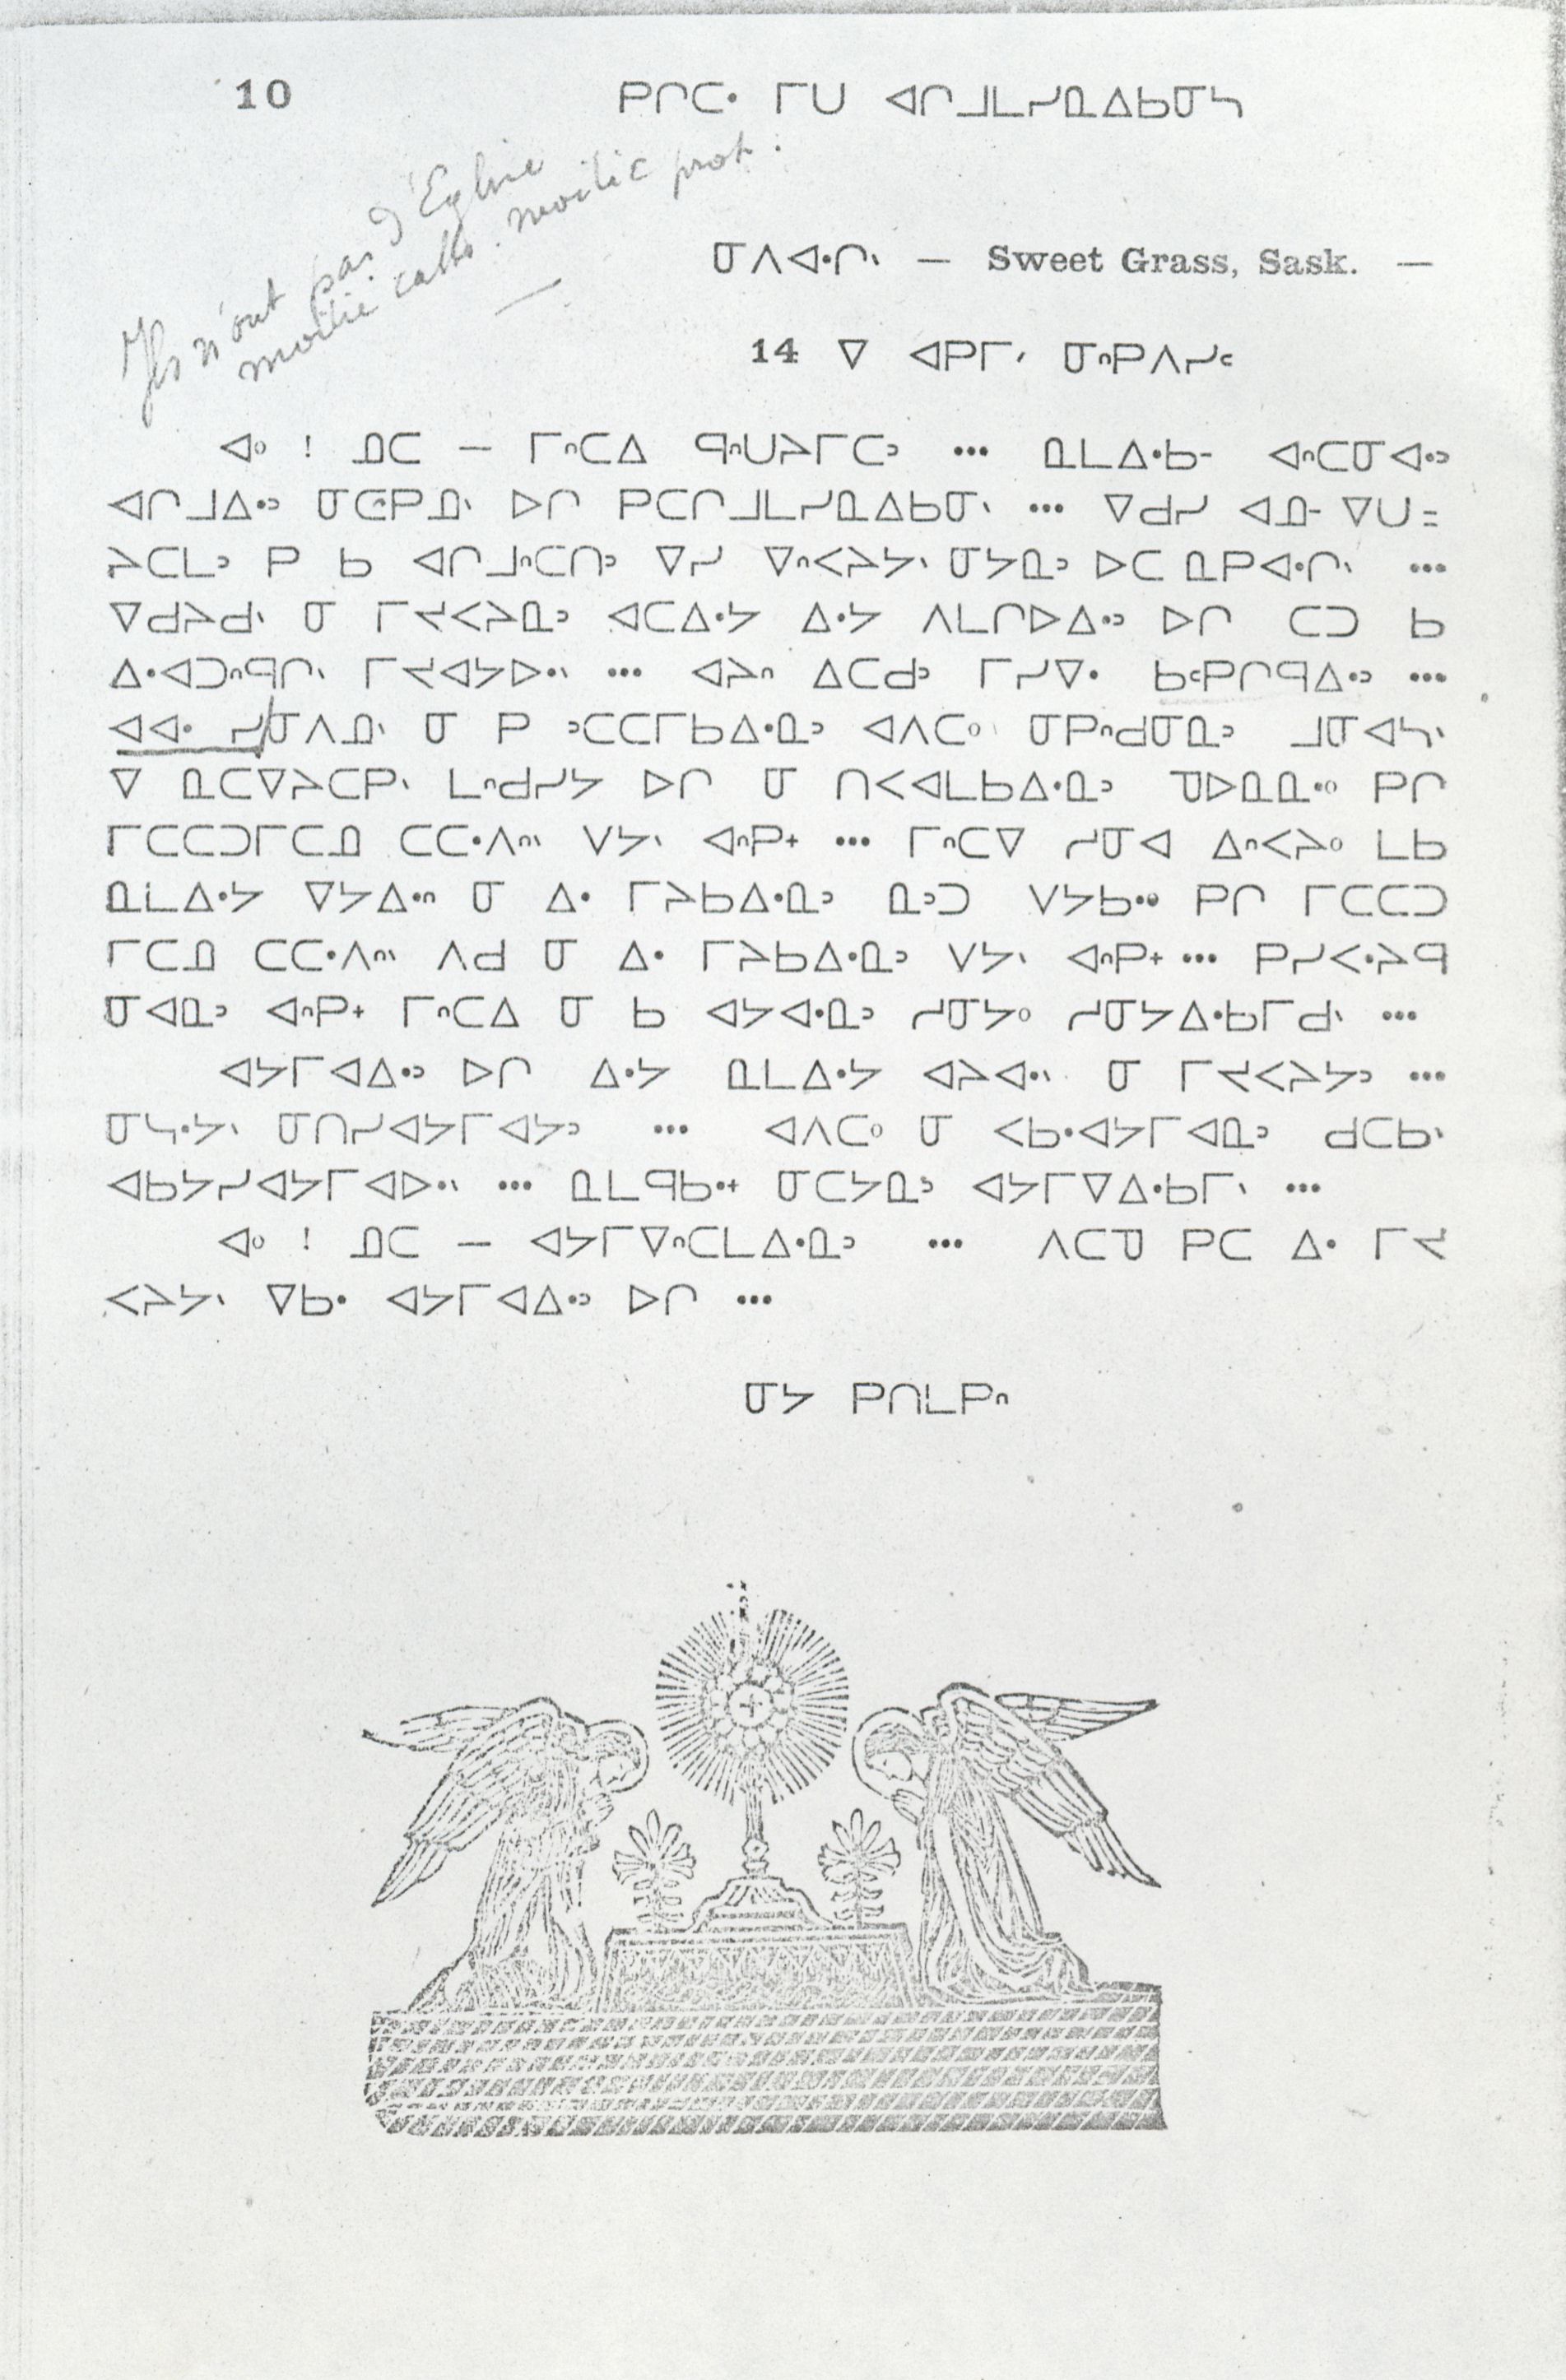 10 ᑭᒋᑕᐧ ᒥᑌ ᐊᒋᒧᒪᓯᓇᐃᑲᓂᓴ
Ils n'ont pas d'Eglise
moitié catho. moitié prot.
ᓂᐱᐊᐧᒋᐠ — Sweet Grass, Sask. —
14 ᐁ ᐊᑭᒥᐟ ᓂᐢᑭᐱᓯᑦ
ᐊᐤ ! ᓄᑕ — ᒥᐢᑕᐃ ᑫᐢᑌᔨᒥᑕᐣ ... ᓇᒪᐃᐧᑲ- ᐊᐢᑕᓂᐊᐧᐣ
ᐊᒋᒧᐃᐧᐣ ᓂᑕᑭᓄᐠ ᐅᒋ ᑭᑕᒋᒧᒪᓯᓇᐃᑲᓂᐠ ... ᐁᑯᓯ ᐊᓄ- ᐁᑌ=
ᔨᑕᒪᐣ ᑭ ᑲ ᐊᒋᒧᐢᑕᑎᐣ ᐁᓯ ᐁᐢᐸᔨᔭᐠ ᓂᔭᓇᐣ ᐅᑕ ᓇᑭᐊᐧᒋᐠ ...
ᐁᑯᔨᑯᐠ ᓂ ᒥᔪᐸᔨᓇᐣ ᐊᑕᐃᐧᔭ ᐃᐧᔭ ᐱᒪᒋᐅᐃᐧᐣ ᐅᒋ ᑕᑐ ᑲ
ᐃᐧᐊᑐᐢᑫᒋᐠ ᒥᔪᐊᔭᐅᐧᐠ ... ᐊᔨᐢ ᐃᑕᑯᐣ ᒥᓯᐁᐧ ᑲᑦᑭᒋᑫᐃᐧᐣ ...
ᐊᐊᐧ ᓯᓂᐱᓄᐠ ᓂ ᑭ ᐣᑕᑕᒥᑲᐃᐧᓇᐣ ᐊᐱᑕᐤ ᓂᑭᐢᑯᓂᓇᐣ ᒧᓂᐊᓴᐠ
ᐁ ᓇᑕᐁᔨᑕᑭᐠ ᒪᐢᑯᓯᔭ ᐅᒋ ᓂ ᑎᐸᐊᒪᑲᐃᐧᓇᐣ ᑯᐅᓇᓇᐧᐤ ᑭᒋ
ᒥᑕᑕᑐᒥᑕᓄ ᑕᑕᐧᐱᐢᐠ ᐯᔭᐠ ᐊᐢᑭᕀ ... ᒥᐢᑕᐁ ᓯᓂᐊ ᐃᐢᐸᔨᐤ ᒪᑲ
ᓇᒪᐃᐧᔭ ᐁᔭᐃᐧᐢ ᓂ ᐃᐧ ᒥᔨᑲᐃᐧᓇᐣ ᓇᐣᑐ ᐯᔭᑲᐧᐤ ᑭᒋ ᒥᑕᑕᑐ
ᒥᑕᓄ ᑕᑕᐧᐱᐢᐠ ᐱᑯ ᓂ ᐃᐧ ᒥᔨᑲᐃᐧᓇᐣ ᐯᔭᐠ ᐊᐢᑭᕀ ... ᑭᓯᐸᐧᔨᑫ
ᓂᐊᓇᐣ ᐊᐢᑭᕀ ᒥᐢᑕᐃ ᓂ ᑲ ᐊᔭᐊᐧᓇᐣ ᓯᓂᔭᐤ ᓯᓂᔭᐃᐧᑲᒥᑯᐠ ...
ᐊᔭᒥᐊᐃᐧᐣ ᐅᒋ ᐃᐧᔭ ᓇᒪᐃᐧᔭ ᐊᔨᐊᐧᐠ ᓂ ᒥᔪᐸᔨᔭᐣ ...
ᓂᓴᐧᔭᐠ ᓂᑎᓯᐊᔭᒥᐊᔭᐣ ... ᐊᐱᑕᐤ ᓂ ᐸᑲᐧᐊᔭᒥᐊᓇᐣ ᑯᑕᑲᐠ
ᐊᑲᔭᓯᐊᔭᒥᐊᐅᐧᐠ ... ᓇᒪᑫᑲᐧᕀ ᓂᑕᔭᓇᐣ ᐊᔭᒥᐁᐃᐧᑲᒥᐠ ...
ᐊᐤ ! ᓄᑕ — ᐊᔭᒥᐁᐢᑕᒪᐃᐧᓇᐣ ... ᐱᑕᑯ ᑭᑕ ᐃᐧ ᒥᔪ
ᐸᔨᔭᐠ ᐁᑲᐧ ᐊᔭᒥᐊᐃᐧᐣ ᐅᒋ ...
ᓂᔭ ᑭᑎᒪᑭᐢ